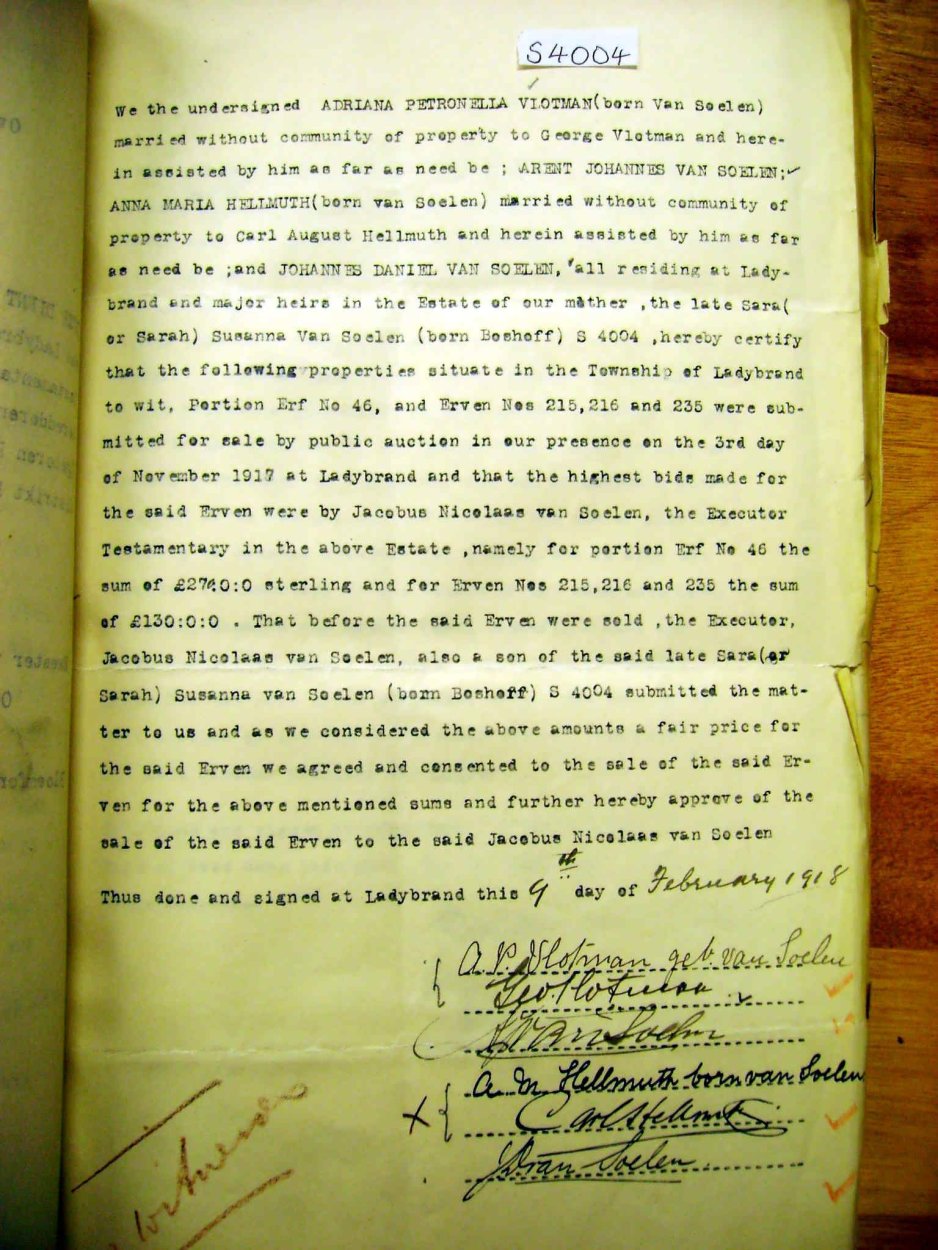 S4004
We the undersigned ADRIANA PETRONELLA VLOTMAN(born Van Soelen)
married without community of property to George Vlotman and here-
in assisted by him as far as need be ; ARENT JOHANNES VAN SOELEN;
ANNA MARIA HELLMUTH(born van Soelen) married without community of
property to Carl August Hellmuth and herein assisted by him as far
as need be ;and JOHANNES DANIEL VAN SOELEN, all residing at Lady-
brand and major heirs in the Estate of our mother ,the late Sara(
or Sarah) Susanna Van Soelen (born Boshoff) S 4004 ,hereby certify
that the following properties situate in the Township of Ladybrand
to wit, Portion Erf No 46, and Erven Nos 215,216 and 235 were sub-
mitted for sale by public auction in our presence on the 3rd day
of November 1917 at Ladybrand and that the highest bids made for
the said Erven were by Jacobus Nicolaas van Soelen, the Executor
Testamentary in the above Estate ,namely for portion Erf No 46 the
sum of sterling and for Erven Nos 215,216 and 235 the sum
of £130:0:0 . That before the said Erven were sold ,the Executor,
Jacobus Nicolaas van Soelen, also a son of the said late Sara(or
Sarah) Susanna van Soelen (born Boshoff) S 4004 submitted the mat-
ter to us and as we considered the above amounts a fair price for
the said Erven we agreed and consented to the sale of the said Er-
ven for the above mentioned sums and further hereby approve of the
sale of the said Erven to the said Jacobus Nicolaas van Soelen
Thus done and signed at Ladybrand this 9th day of February 1918
A. P. Vlotman geb. van Soelen
Geo. Vlotman
AJ Van Soelen
A M Hellmuth born van Soelen
X Carl Hellmuth
JD van Soelen